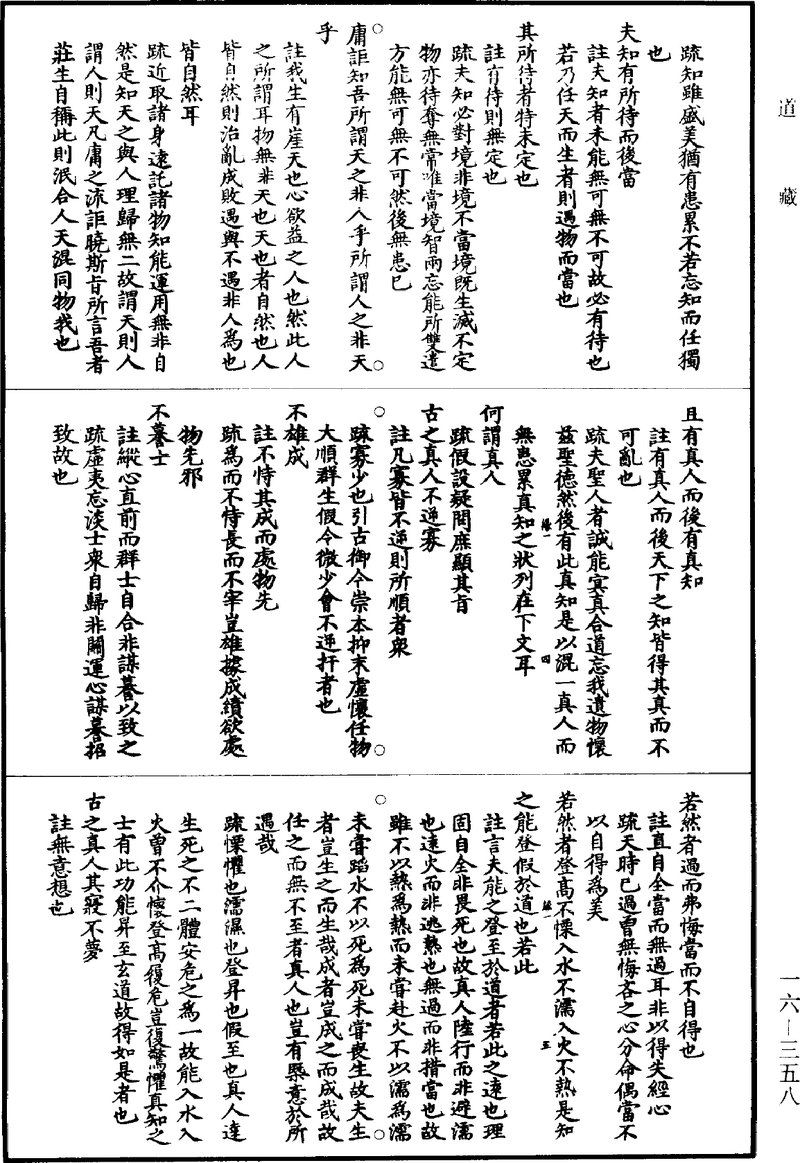 道藏
疏知雖盛美猶有患累不若忘知而任獨
也
夫知有所待而後當
註夫知者未能無可無不可故必有待也
若乃任天而生者則遇物而當也
其所待者特未定也
註有待則無定也
疏夫知必對境非境不當境既生滅不定
物亦待奪無常唯當境智兩忘能所雙遣
方能無可無不可然後無患已
庸詎知吾所謂天之非人乎所謂人之非天
乎
註我生有崖天也心欲益之人也然此人
之所謂耳物無非天也天也者自然也人
皆自然則治亂成敗遇與不遇非人為也
皆自然耳
疏近取諸身遠託諸物知能運用無非自
然是知天之與人理歸無二故謂天則人
謂人則天凡庸之流詎曉斯旨所言吾者
莊生自稱此則泯合人天混同物我也
且有真人而後有真知
註有真人而後天下之知皆得其真而不
可亂也
疏夫聖人者誠能冥真合道忘我遺物懷
茲聖德然後有此真知是以混一真人而
無患累真知之狀列在下文耳
何謂真人
疏假設疑問庶顯其旨
古之真人不逆寡
註凡寡皆不逆則所順者衆
疏寡少也引古御今崇本抑末虛懷任物
大順群生假令微少曾不逆扞者也
不雄成
註不恃其成而處物先
疏為而不恃長而不宰豈雄據成績欲處
物先邪
不謩士
註縱心直前而群士自合非謀謩以致之
疏虛夷忘淡士衆自歸非關運心謀謩招
致故也
若然者過而弗悔當而不自得也
註直自全當而無過耳非以得失經心
疏天時已過曾無悔吝之心分命偶當不
以自得為美
若然者登高不慄入水不濡入火不熱是知
之能登假於道也若此
註言夫能之登至於道者若此之遠也理
固自全非畏死也故真人陸行而非避濡
也遠火而非逃熱也無過而非措當也故
雖不以熱為熱而未嘗赴火不以濡為濡
未嘗蹈水不以死為死未嘗喪生故夫生
者豈生之而生哉成者豈成之而成哉故
任之而無不至者真人也豈有槩意於所
遇哉
疏慄懼也濡濕也登昇也假至也真人達
生死之不二體安危之為一故能入水入
火曾不介懷登高履危豈復驚懼真知之
士有此功能昇至玄道故得如是者也
古之真人其寢不夢
註無意想也
一六—三五八